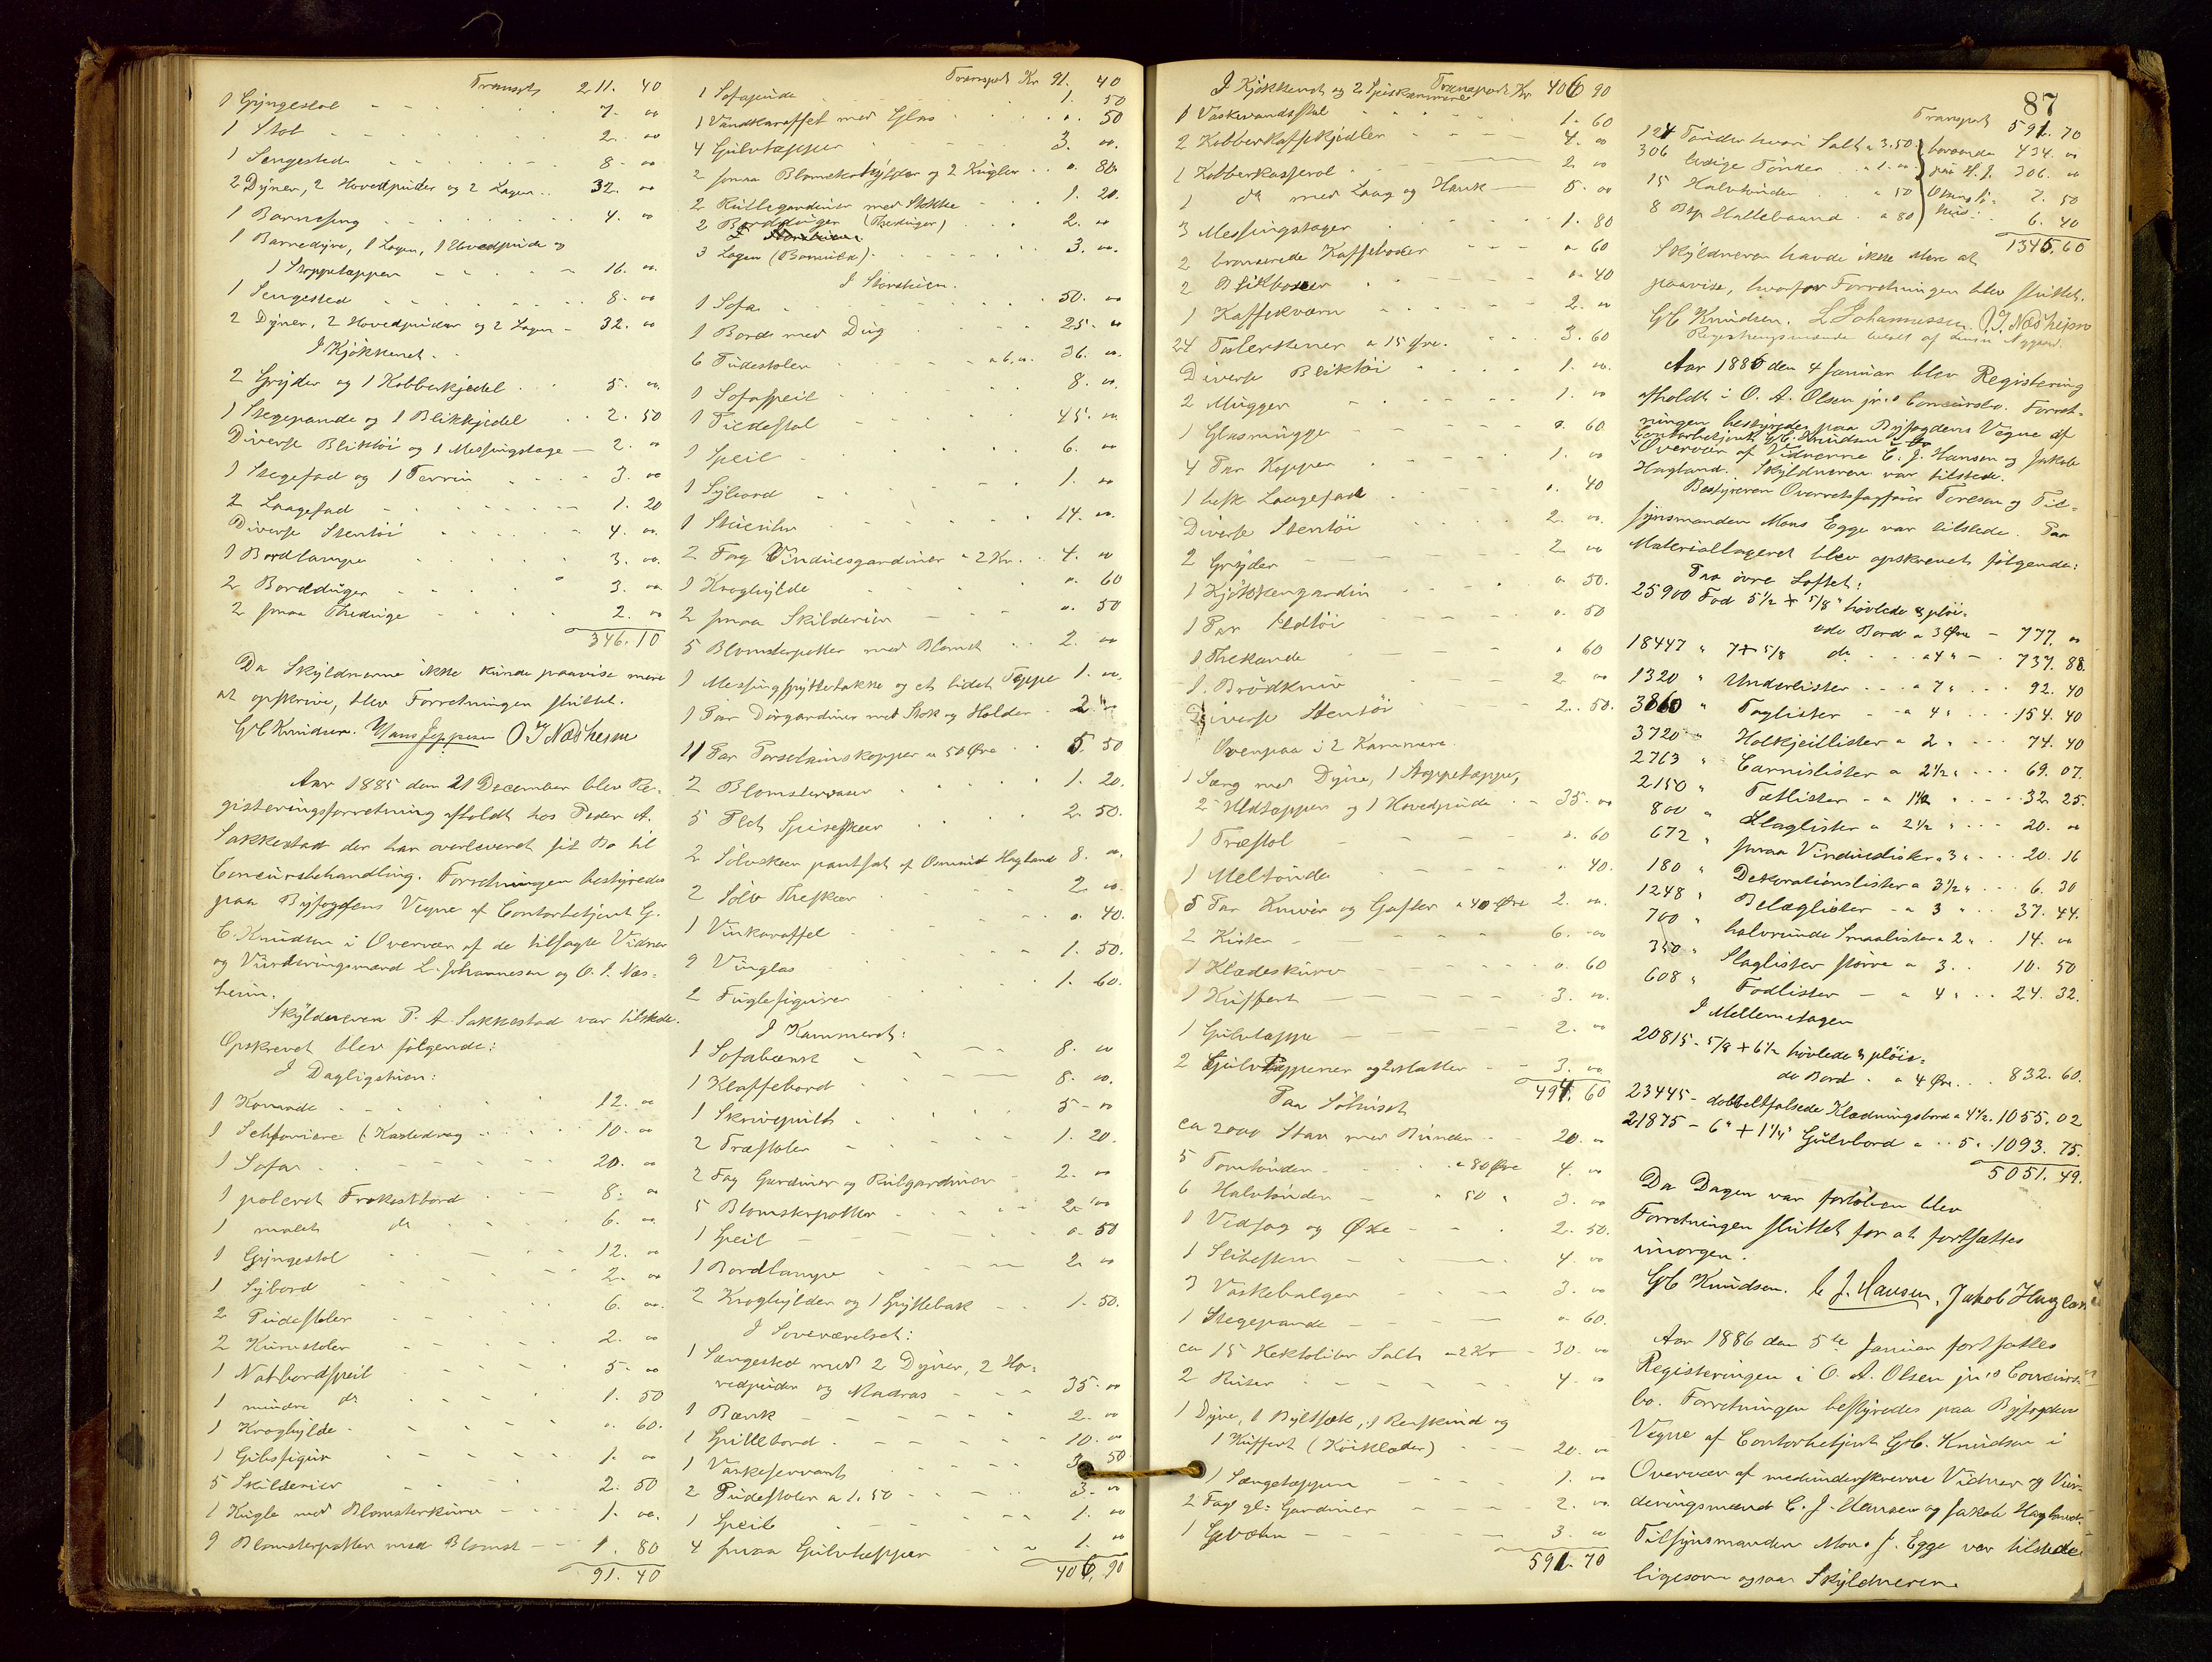 Transpt 211. 40
1 Gyngestol - - - 7. 00
1 Stol - - - 2. 00
1 Sengested - - - 8. 00
2 Dyner, 2 Hovedpuder og 2 Lagen .. 32. 00
1 Barneseng - - - 4. 00
1 Barnedyne, 1 Lagen, 1 Hovedpude og
1 Stoppetæppen - - - 16. 00
1 Sengested - - - 8. 00
2 Dyner, 2 Hovedpuder og 2 Lagen - 32. 00
I Kjøkkenet.
2 Gryder og 1 Kobberkjedel . . . 5. 00
1 Stegepande og 1 Blikkjedel . . 2. 50
Diverse Bliktøi og 1 Messingstage - 2. 00
1 Stegefad og 1 Terrin - - - 3. 00
2 Laagefad - - - 1. 20
Diverse Stentøi - - - 4. 00
1 Bordlampe - - - 3. 00
2 Bordduger - - - 3. 00
2 smaa Theduge - - - 2. 00
346. 10
Da Skyldnerne ikke kunde paavise mere
at opskrive, blev Forretningen sluttet.
G C Knudsen. Hans Jeppesen O I Nædheim
Aar 1885 den 21 December blev Re-
gisteringsforretning afholdt hos Peder A.
Sakkestad der har overleveret sit Bo til
Concursbehandling. Forretningen bestyredes
paa Byfogdens Vegne af Contorbetjent G.
C. Knudsen i Overvær af de tilsagte Vidner
og Vurderingsmænd L. Johannesen og O. I. Næs-
heim.
Skyldneren P. A. Sakkestad var tilstede.
Opskrevet blev følgende:
I Dagligstuen:
1 Komode - - - 12. 00
1 Schefoniere (Kastedrag - - - 10. 00
1 Sofa - - - 20. 00
1 poleret Frokostbord - - - 8. 00
1 malet do - - - 6. 00
1 Gyngestol - - - 12. 00
1 Sybord - - - 2. 00
2 Pudestoler - - - 6. 00
2 Kurvstoler - - - 2. 00
1 Natbordspeil - - - 5. 00
1 mindre do - - - 1. 50
1 Kroghylde - - - 0. 60.
1 Gibsfigur - - - 1. 00
5 Skilderier - - - 2. 50
1 Kugle med Blomsterkurv - - - 1. 00.
9 Blomsterpotter med Blomst - - 1. 80
91. 40
Transpt Kr. 91. 40
1 Sofapude - - - 1. 50
1 Vandkaraffel med Glas - - - 0. 50
4 Gulvtæpper - - - 3. 00.
2 smaa Blomsterhylder og 2 Kugler . . 0. 80.
2 Rullegardiner med Stokke - - - 1. 20.
2 Bordduger (Theduger) . . . 2. 00
3 Lagen (Bomuld) - - - 3. 00.
I Storstuen.
1 Sofa - - - 50. 00
1 Bord med Dug - - - 25. 00
6 Pudestoler - - - a 6. 00. 36. 00.
1 Sofaspeil - - - 8. 00.
1 Piedestal - - - 45. 00
1 Speil - - - 6. 00
1 Sybord - - - 1. 00
1 Stueuhr - - - 14. 00.
2 Fag Vinduesgardiner a 2 Kr. . 4. 00
1 Kroghylde - - - 0. 60
2 smaa Skilderier - - - 0. 50
5 Blomsterpotter med Blomst . . 2. 00
1 Messingspyttebakke og et lidet Teppe 1. 00.
1 Par Dørgardiner med Stok og Holder - 2. 00
11 Par Porselainskopper a 50 Øre . . 5. 50
2 Blomstervaser - - - 1. 20.
5 Plet Spiseskeer - - - 2. 50.
2 Sølvskeer pantsat af Osmund Hagland 8. 00.
2 Sølv Theskeer - - - 2. 00.
1 Vinkaraffel - - - 0. 40.
9 Vinglas - - - 1. 50.
2 Fuglefigurer - - - 1. 60.
I Kammeret:
1 Sofabænk - - - 8. 00
1 Klaffebord - - - 8. 00.
1 Skrivepult - - - 5. 00
2 Træstoler - - - 1. 20.
2 Fag Gardiner og Rulgardiner - 2. 00
5 Blomsterpotter - - - 2. 00
1 Speil - - - 0. 50
1 Bordlampe - - - 2. 00
2 Kroghylder og 1 Spyttebak - - - 1. 50.
I Soveværelset:
1 Sængested med 2 Dyner, 2 Ho-
vedpuder og Madras - - - 35. 00
1 Bænk - - - 2. 00
1 Spillebord - - - 10. 00
1 Vaskeservant - - - 3. 50
2 Pudestoler a 1. 50 - - - 3. 00
1 Speil - - - 1. 00
4 smaa Gulvtæpper - - - 1. 00
406. 90
I Kjøkkenet og 2 Spiskammere Transport Kr. 406 90
1 Vaskevandsstel - - - 1. 60
2 Kobberkaffekjedler - - - 4. 00
1 Kobberkasserol - - - 2. 00
1 do med Laag og Hank - 5. 00
3 Messingstager - - - 1. 80
2 bronserede Kaffeboder - - - 0. 60
2 Blikboxer - - - 0. 40
1 Kaffekværn - - - 2. 00
24 Tallerkener a 15 Øre - - - 3. 60
Diverse Bliktøi - - - 1. 00.
2 Mugger - - - 1. 00
1 Glasmugge - - - 0. 60
4 Par Kopper - - - 1. 00
1 besk. Laagefad - - - 0. 40
Diverse Stentøi - - - 2. 00.
2 Gryder - - - 2. 00
1 Kjøkkengardin - - - 0. 50.
1 Par Ildtøi - - - 0. 50
1 Thekande - - - 0. 60
1 Brødkniv - - - 2. 00
Diverse Stentøi - - - 2. 50.
Ovenpaa i 2 Kammere.
1 Sæng med Dyne, 1 Stoppetæppe,
2 Uldtæpper og 1 Hovedpude - - 35. 00
1 Træstol - - - 0. 60
1 Meltønde - - - 0. 40.
5 Par Kniver og Gafler a 40 Øre 2. 00.
2 Kister - - - 6. 00
1 Klædeskurv - - - 0. 60
1 Kuffert - - - 3. 00.
1 Gulvtæppe - - - 2. 00
2 Gulvtæppener og 2 Matter - - 3. 00
494. 60
Paa Søhuset
ca 2000 Stav med Bunder - - 20. 00
5 Tomtønder - - - a 80 Øre 4. 00
6 Halvtønder - a 50 " 3. 00
1 Vedsag og Øxe - - - 2. 50.
1 Slibesten - - - 4. 00
3 Vaskebalger - - - 3. 00
1 Stegepande - - - 0. 60.
ca 15 Hektoliter Salt a 2 Kr - 30. 00
2 Ruser - - - 4. 00
1 Dyne, 1 Byltsæk, 1 Renskind og
1 Kuffert (Køiklæder) - - - 20. 00
1 Sængetæppen - - - 1. 00
2 Fag gl: Gardiner - - - 2. 00.
1 Gevæhr - - - 3. 00
591. 70
87
Transport 591. 70
124 Tønder hvori Salt a 3.50. beroende 434. 00
306 ledige Tønder . . a 1. 00. paa H. J. 306. 00
15 Halvtønder a 50 7. 50
8 Bdt Hallebaand . a 80 hus: 6. 40
1345. 60
Skyldneren havde ikke mere at
paavise, hvorfor Forretningen blev sluttet.
G C Knudsen. L Johannessen. O I. Nædheim
Registringsmænde betalt af
Aar 1886 den 4 Januar blev Registering
afholdt i O. A. Olsen jr.s Concursbo. Forret-
ningen bestyredes paa Byfogdens Vegne af
Contorbetjent G. C. Knudsen i
Overvær af Vidnerne C. J. Hansen og Jakob
Hagland. Skyldneren var tilstede.
Bestyreren Overretssagfører Toresen og Til-
synsmanden Mons Egge var tilstede. Paa
Materiallageret blev opskrevet følgende:
Paa øvre Loftet:
25900 Fod 5 1/2 + 5/8" høvlede & pløi-
ede Bord a 3 Øre - 777. 00
18447 " 7 + 5/8 do . . a 4 " - . 737. 88.
1320 " Underlister . . . a 7 " . . . 92. 40
3860 " Taglister - - a 4 " . . . 154. 40
3720 " Holkjeillister a 2 " . . . 74. 40
2763 " Carnislister a 2 1/2 " . . . 69. 07.
2150 " Tætlister - a 1 1/2 " . . . 32 25.
800 " Slaglister a 2 1/2 " . . . 20. 00
672 " smaa Vindueslister a 3 " . . . 20. 16
180 " Dekorationslister a 3 1/2 " . . . 6. 30
1248 " Belæglister - a 3 " . . 37. 44.
700 " halvrunde Smaalister a 2 " . 14. 00
350 " Slaglister større a 3 . . 10. 50
608 " Fodlister - a 4 " . . 24. 32.
I Mellemetagen
20815 - 5/8 + 6 1/2 høvlede & pløie-
de Bord . a 4 Øre . . . 832. 60.
23445 - dobbeltfalsede Klædningsbord a 4 1/2. 1055. 02
21875 - 6" + 1 1/4" Gulvbord a . . 5 " . 1093. 75.
5051. 49.
Da Dagen var forløben blev
Forretningen sluttet for at fortsættes
imorgen.
G C Knudsen. C J. Hansen, Jakob Hagland
Aar 1886 den 5te Januar fortsattes
Registeringen i O. A. Olsen jr.s Concurs-
bo. Forretningen bestyredes paa Byfogdens
Vegne af Contorbetjent G C. Knudsen i
Overvær af medunderskrevne Vidner og Vur-
deringsmænd C. J. Hansen og Jakob Hagland.
Tilsynsmanden Mons J. Egge var tilstede
ligesom ogsaa Skyldneren.